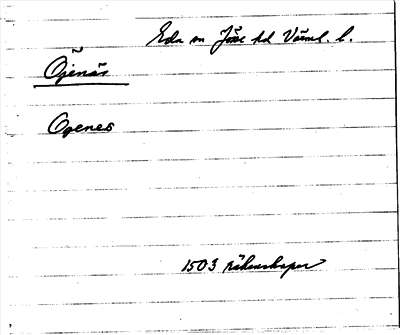 Eda sn Jösse hd Värml. l.
Öjenäs
Ogenes
1503 räkenskaper